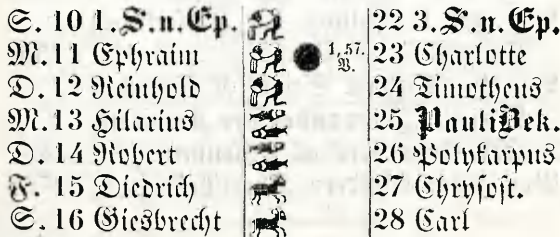 S. 10 1. S. n. Ep. 22 3. S. n. Ep.
M. 11 Ephraim 1,57. V. 23 Charlotte
D. 12 Reinhold 24 Timotheus
M. 13 Hilarius 25 Pauli Bek.
D. 14 Robert 26 Polykarpus
F. 15 Diedrich 27 Chrysost.
S. 16 Giesbrecht 28 Carl